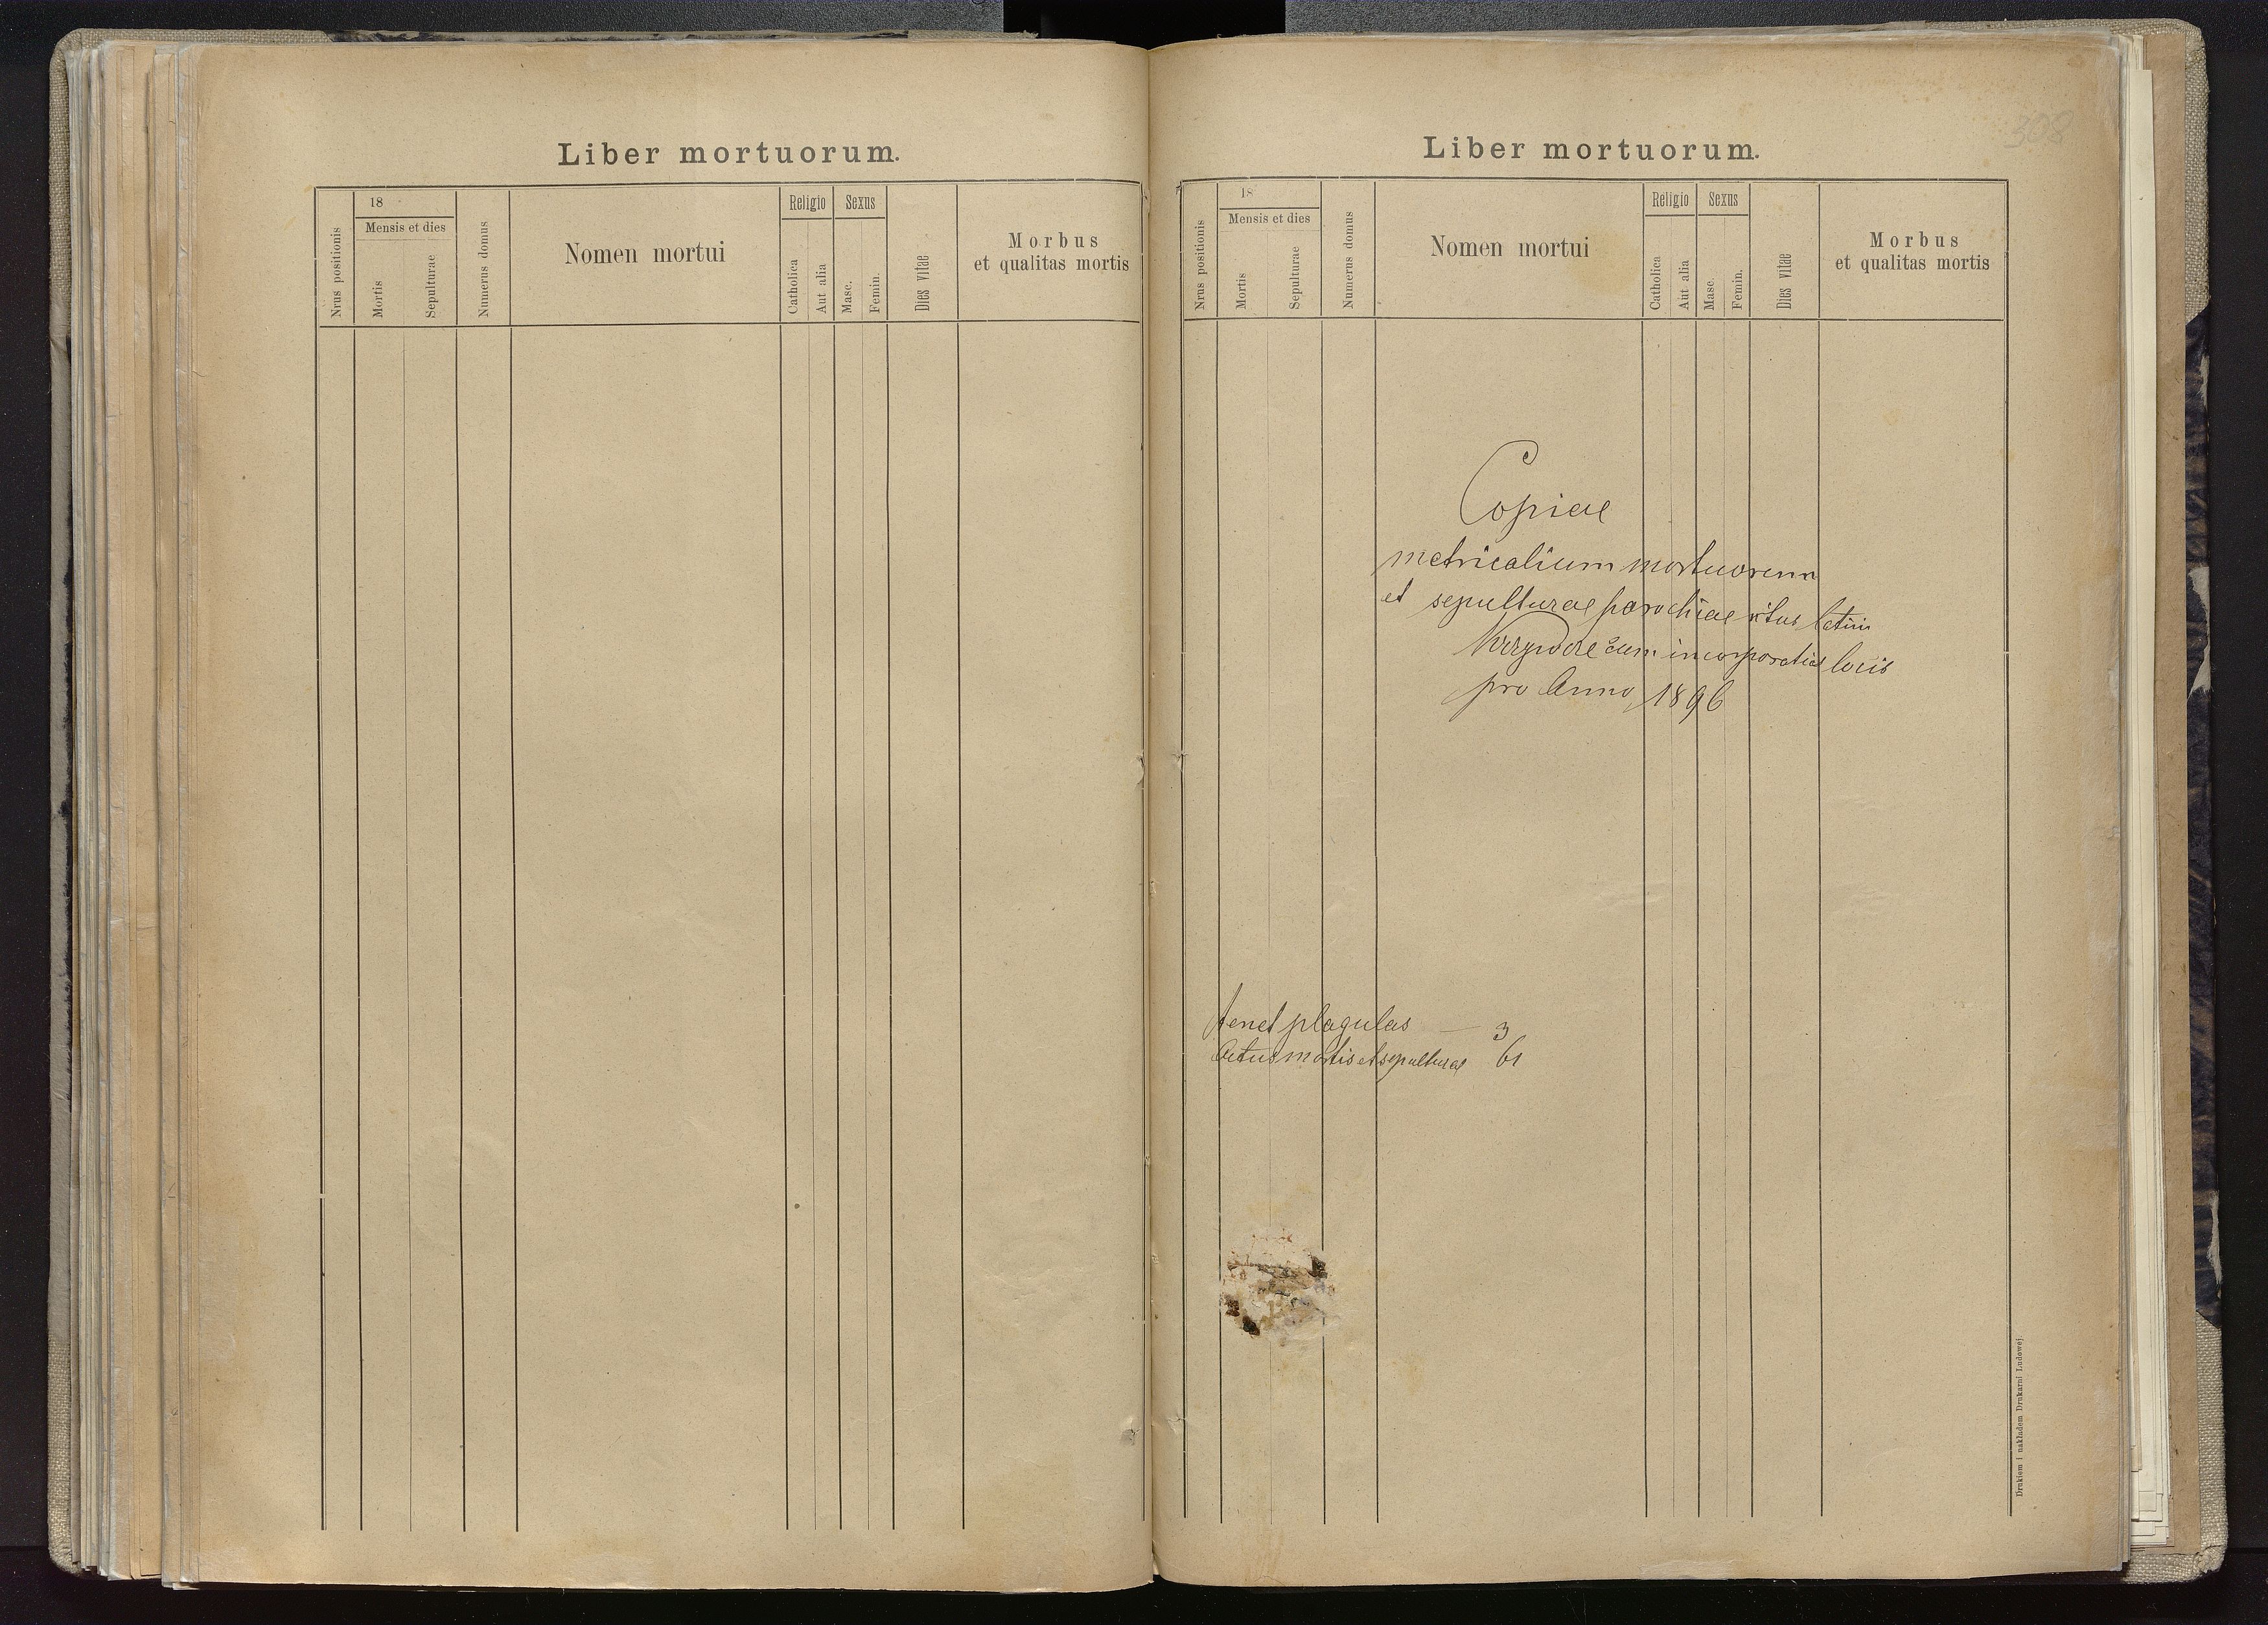 Liber mortuorum.
Nrus positionis
18
Mensis et dies
Mortis
Sepulturae
Numerus domus
Nomen mortui
Religio
Catholica
Aut alia
Sexus
Masc.
Femin.
Dies vitae
Morbus
et qualitas mortis
308
Liber mortuorum.
Nrus positionis
18
Mensis et dies
Mortis
Sepulturae
Numerus domus
Nomen mortui
Religio
Catholica
Aut alia
Sexus
Masc.
Femin.
Dies vitae
Morbus
et qualitas mortis
Copiae
metricalium mortuorum
et sepulturae parochiae ritus latini
cum incorporatis locis
pro Anno 1896
tenet plagulas — 3
Actus mortis et sepulturae 61
Drukiem i nakładem Drukarni Ludowej.